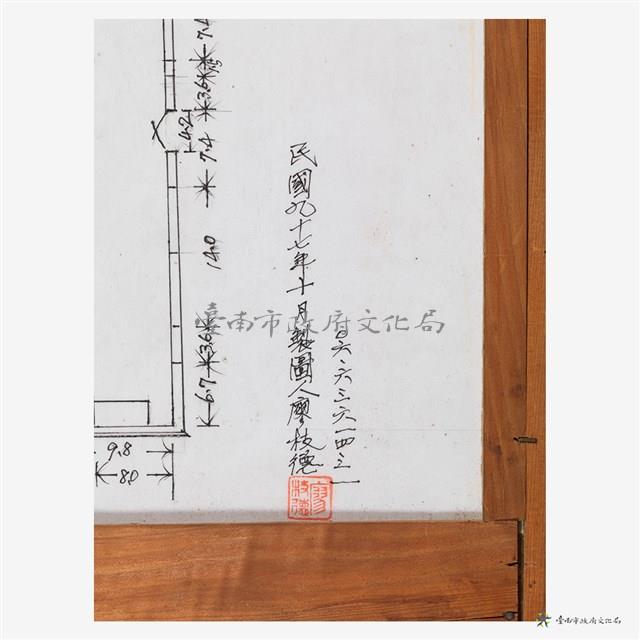 民國九十七年十月製圖人廖枝德
○六·六三六一四三一
廖枝德
7.4
3.6
4.2
7.4
14.0
3.6
6.7
9.8
8.0
臺南市政府文化局
臺南市政府文化局